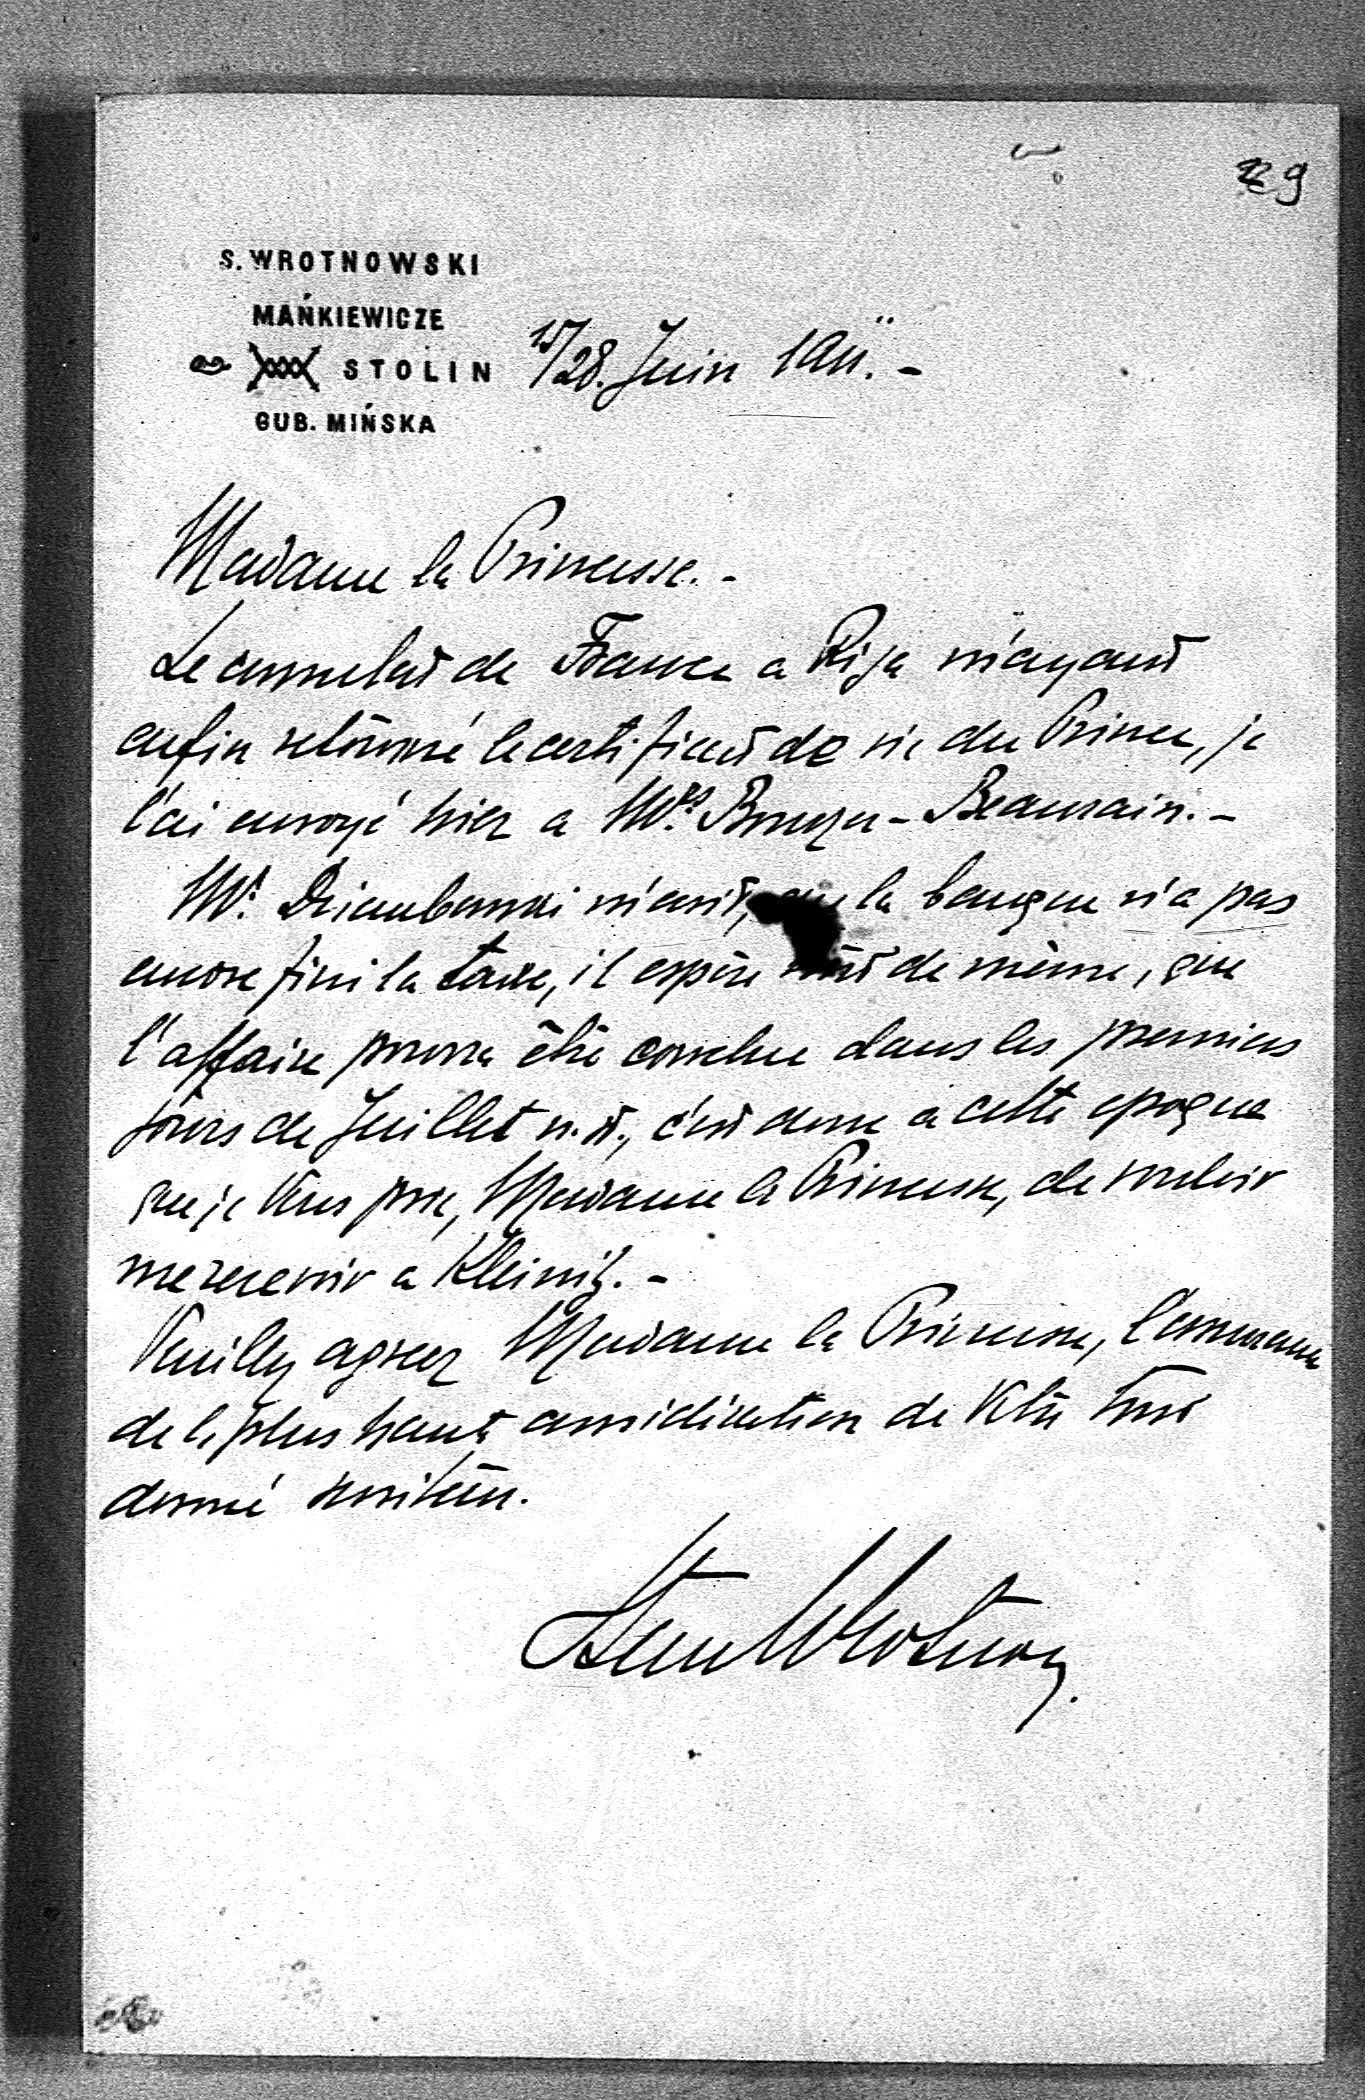 29
S. WROTNOWSKI
MAŃKIEWICZE
STOLIN
GUB. MIŃSKA
15/28. Juin 1911. -
Madame la Princesse. -
Le consulat de France a Riga m'ayant
enfin retourné le certificat de vie du Prince, je
l'ai envoyé hier a Mrs. - Beaurain. -
Mr. Dziembowski m'ecrit, que la banque n'a pas
encore fini la taxe, il espère tout de même, que
l'affaire pourra être conclue dans les premiers
jours de Juillet n. st., c'est donc a cette epoque
que je Vous prie, Madame la Princesse, de vouloir
me recevoir a Kleinitz. -
Veuillez agreer Madame la Princesse, l'assurance
de la plus haute consideration de Votre tout
devoué serviteur.
Stan Wrotnowski.